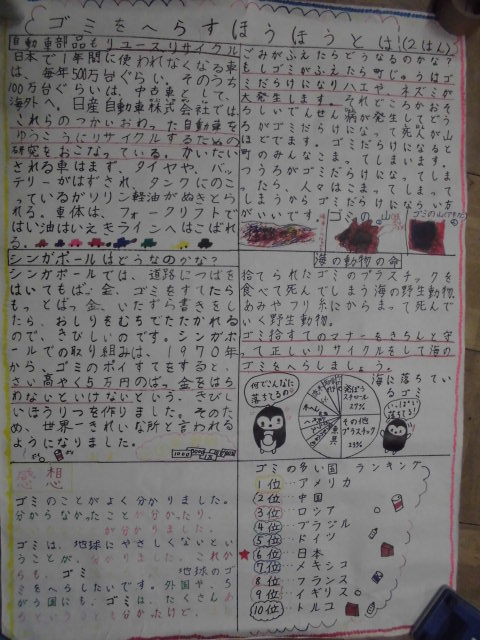 ゴミをへらすほうほうとは!(2はん)
自動車部品もリユースリサイクル
日本で1年間に使われなくなる車
は、毎年500万台ぐらい。そのうち
100万台ぐらいは、中古車として、
海外へ。日産自動車株式会社では、
これらのつかいおわった自動車を
ゆうこうにリサイクルするための
研究をおこなっている。かいたい
される車はまず、タイヤや、バッ
テリーがはずされ、タンクにのこ
っているガソリン軽油がぬきとら
れる。車体は、フォークリフトで
はい油はいえきラインへはこばれ
る。
シンガポールはどうなのかな?
シンガポールでは、道路につばを
はいてもばっ金、ゴミをすてたら
もっとばっ金、いたずら書きをし
たら、おしりをむちでたたかれる
ので、きびしいのです。シンガポ
ールでの取り組みは、1970年
から、ゴミのポイすてをすると、
さい高やく5万円のばっ金をはら
わないといけないという、きびし
いほうりつを作りました。そのた
め、世界一きれいな所と言われる
ようになりました。
感想
ゴミのことがよく分かりました。
分からなかったことが分かたり、
が分かりました。
ゴミは、地球にやさしくないとい
うことが、分かりました。これか
らも、ゴミ
地球のゴ
ミをへらしたいです。外国や、ち
がう国にも、ゴミは、たくさん
ごみがふえたらどうなるのかな?
もしゴミがふえたら町じゅうはゴ
ミだらけになりハエや、ネズミが
大発生します。それどころかおそ
ろしいでんせん病が発生してどう
ろがゴミだらけになって死人が山
ほどでます。ゴミだらけになると
町のみんなこまってしまいます。
つうろがゴミだらけになってしま
ったら、人々はこまってしまって
しまうからゴミだらけにならい方
がいいです。
ゴミの山
海の動物の命
拾てられたゴミのプラスチックを
食べて死んでしまう海の野生動物、
あみやフリ糸にからまって死んで
いく野生動物。
ゴミ拾すてのマナーをきちんと守
って正しいリサイクルをして海の
ゴミをへらしましょう。
海に落ちてい
るゴミ
何でこんなに
落ちてるの?
発ぽう
スチロール
29%
その他
プラスチック
23%
いっぱい
落ちてる!
ゴミの多い国 ランキング
1位…アメリカ
2位…中国
3位…ロシア
4位…ブラジル
5位…ドイツ
6位…日本
7位…メキシコ
8位…フランス
9位…イギリス
10位…トルコ